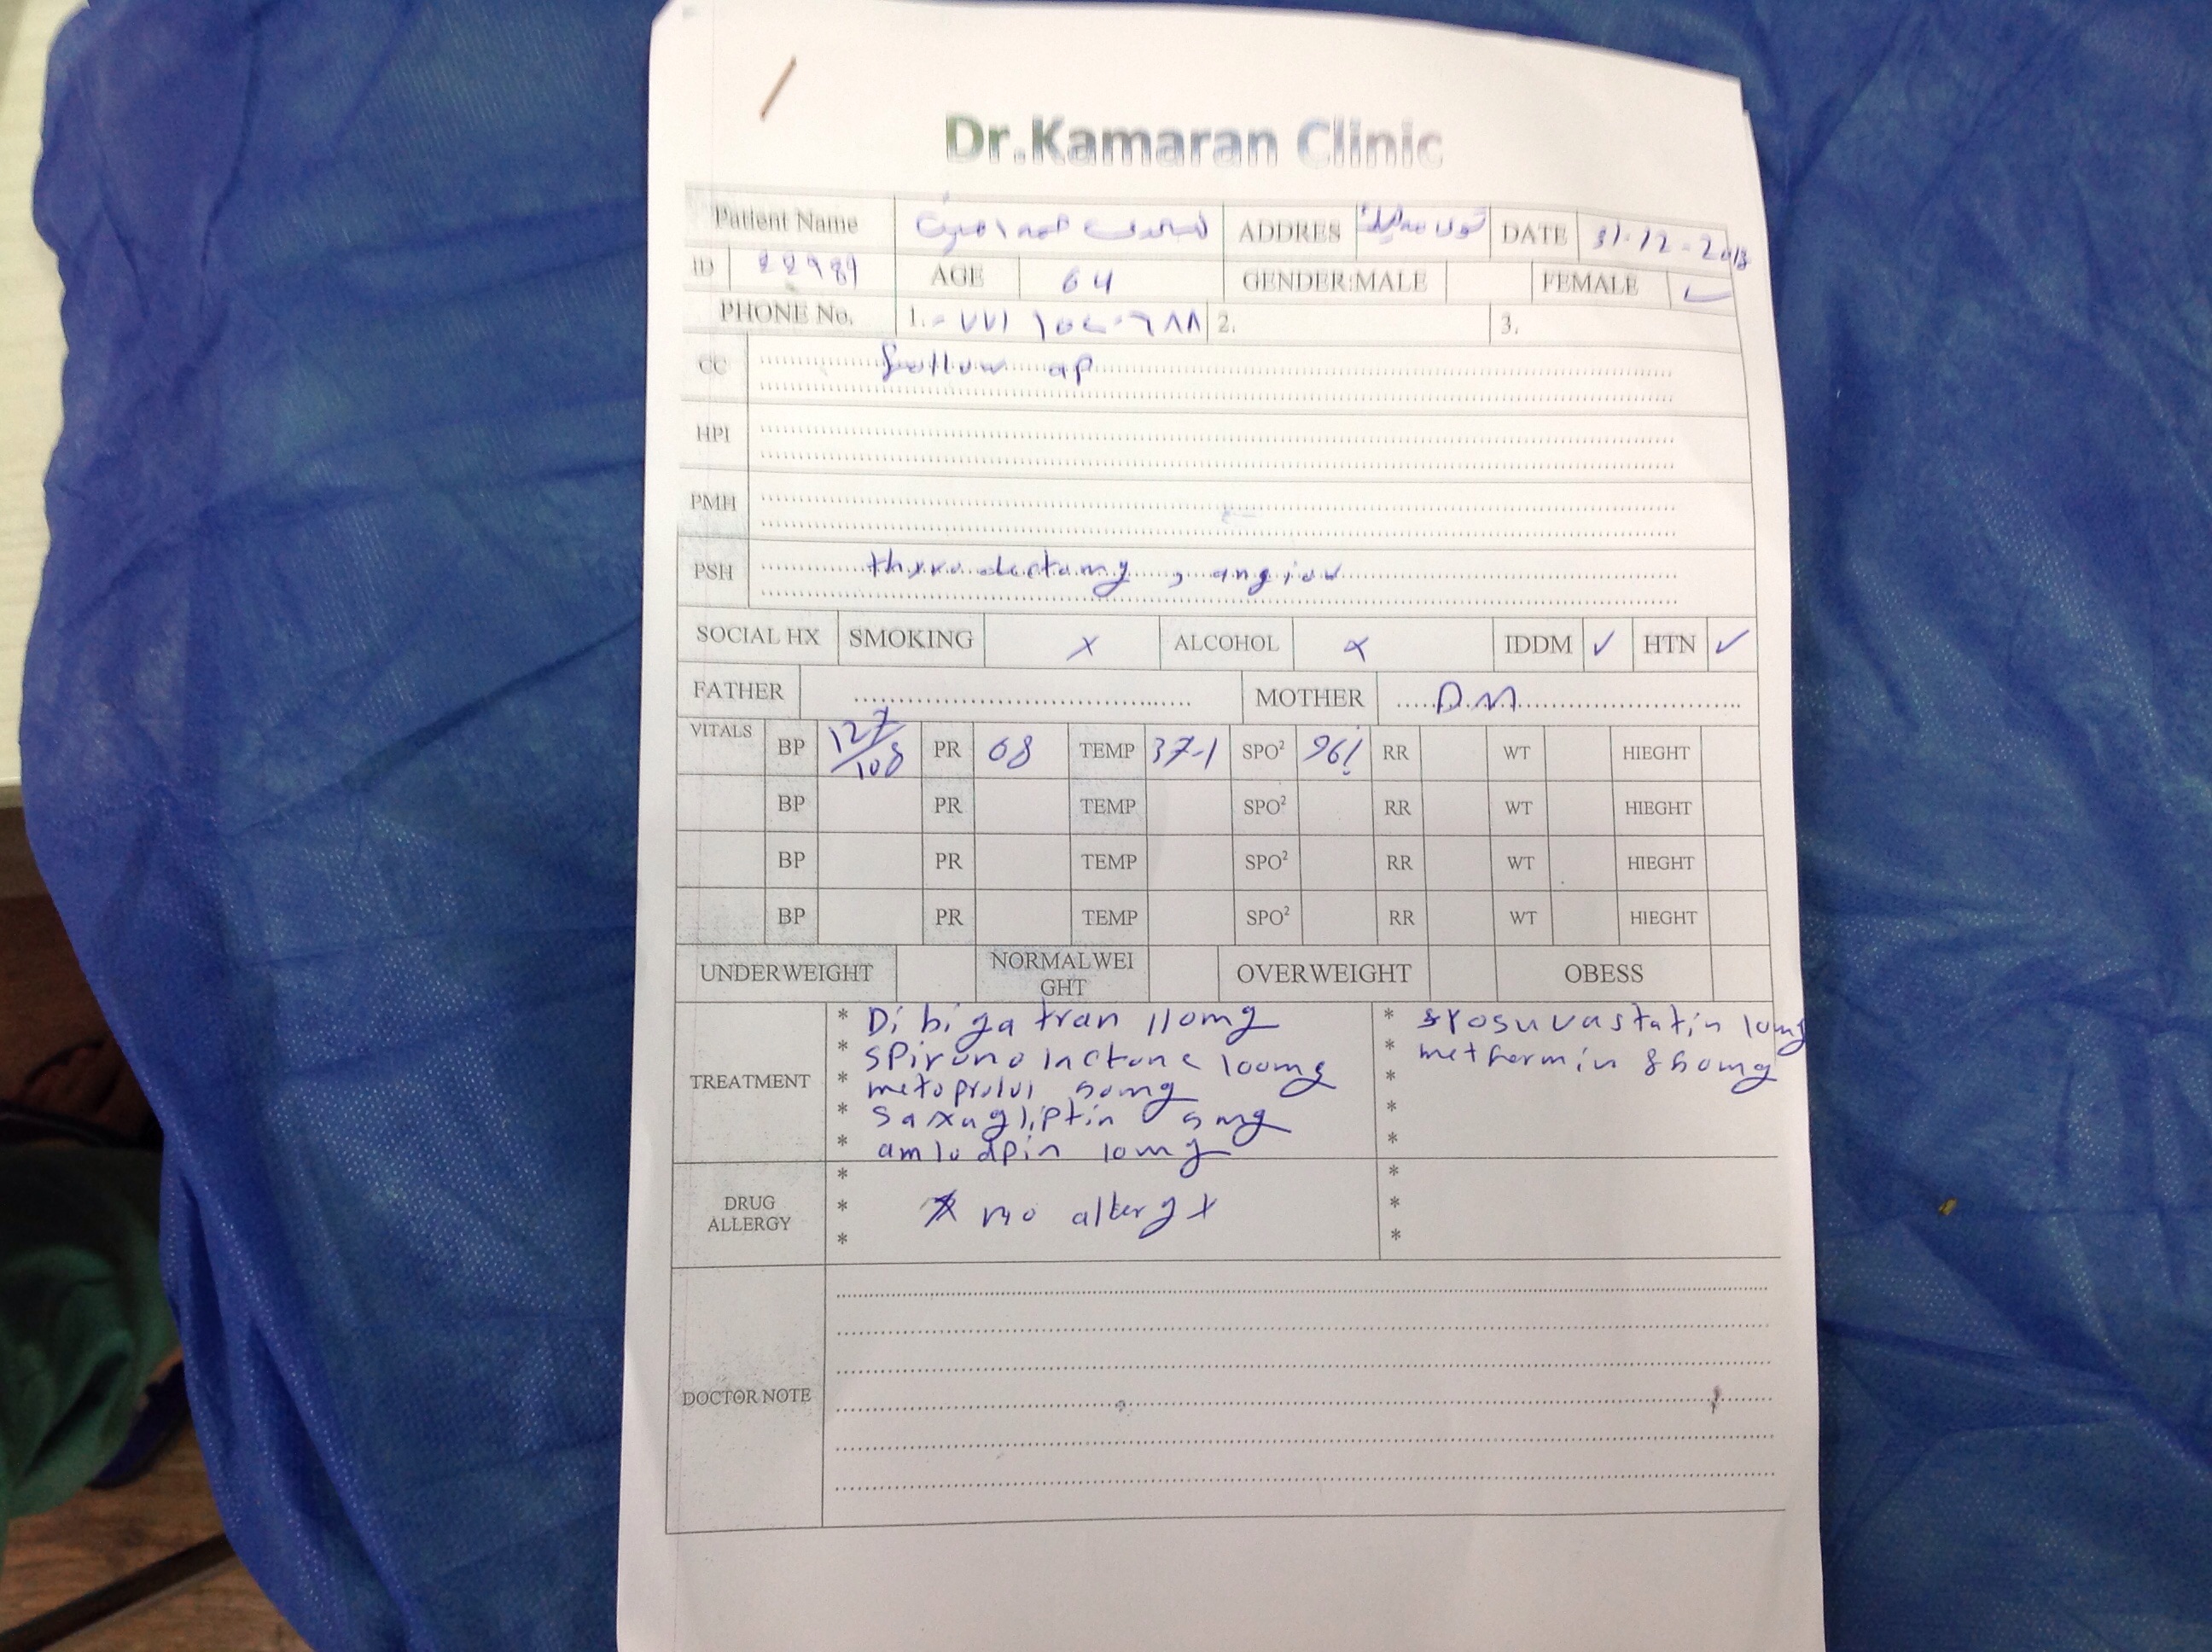 Dr.Kamaran Clinic
Patient Name ADDRES DATE 31-12-2018
ID 22989 AGE 64 GENDER:MALE FEMALE ✓
PHONE No. 1. 2. 3.
CC follow up
HPI
PMH
PSH thyrodectomy , angio
SOCIAL HX SMOKING X ALCOHOL X IDDM ✓ HTN ✓
FATHER MOTHER D.M
VITALS BP 127/108 PR 68 TEMP 37.1 SPO² 96% RR WT HIEGHT
BP PR TEMP SPO² RR WT HIEGHT
BP PR TEMP SPO² RR WT HIEGHT
BP PR TEMP SPO² RR WT HIEGHT
UNDERWEIGHT NORMALWEI GHT OVERWEIGHT OBESS
TREATMENT
* Dibigatran 110mg
* spironolactone 100mg
* metoprolol 50mg
* saxagliptin 5mg
* amlodpin 10mg
* rosuvastatin 10mg
* metformin 850mg
*
*
*
DRUG ALLERGY
*
* no allergy
*
*
*
*
DOCTOR NOTE